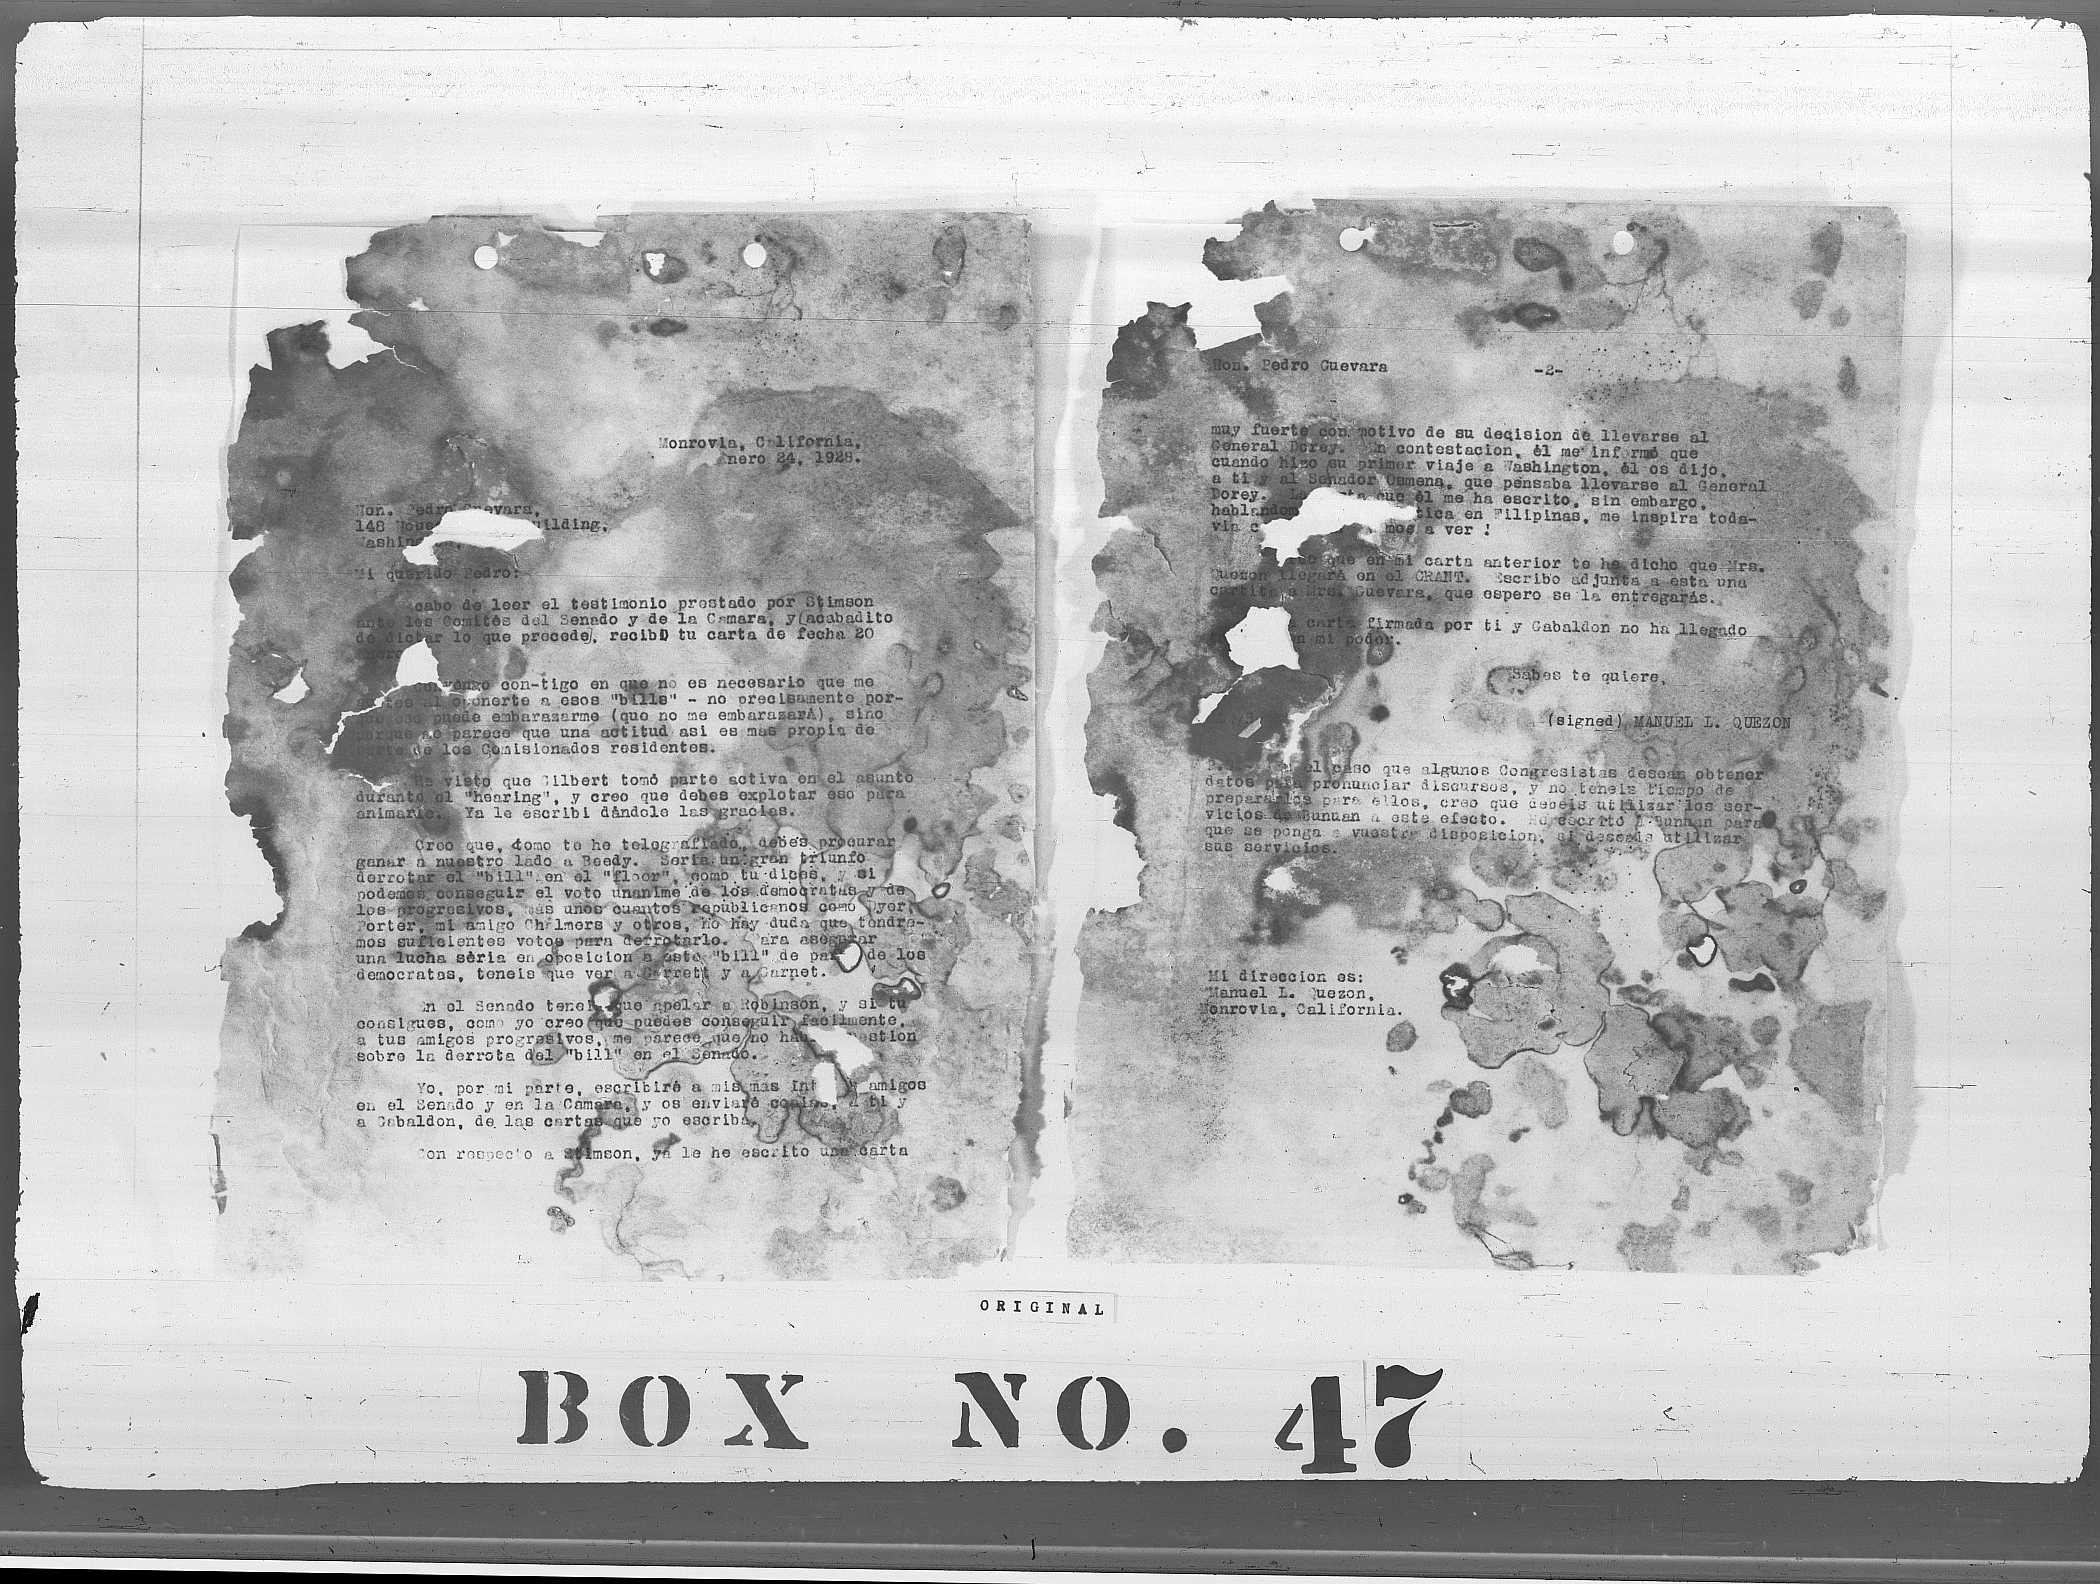 Monrovia, California,
nero 24, 1928.
Hon. Pedro Guevara,
148 House uilding,
Washing
Mi querido Pedro:
cabo de leer el testimonio prestado por Stimson
ante los Comités del Senado y de la Camara, y (acabadito
de dictar lo que precede), recibi tu carta de fecha 20
Convengo con-tigo en que no es necesario que me
al oponerte a esos "bills" - no precisamente por-
que eso puede embarazarme (que no me embarazará), sino
porque me parece que una actitud asi es mas propia de
parte de los Comisionados residentes.
He visto que Gilbert tomó parte activa en el asunto
durante el "hearing", y creo que debes explotar eso para
animarle. Ya le escribi dándole las gracias.
Creo que, como te he telegrafiado, debes procurar
ganar a nuestro lado a Beedy. Seria un gran triunfo
derrotar el "bill" en el "floor", como tu dices, y si
podemos conseguir el voto unanime de los democratas y de
los progresivos, mas unos cuantos republicanos como Dyer,
Porter, mi amigo Chalmers y otros, no hay duda que tendre-
mos suficientes votos para derrotarlo. Para asegurar
una lucha séria en oposicion a este "bill" de par de los
democratas, teneis que ver a Garrett y a Garnet.
En el Senado teneis que apelar a Robinson, y si tu
consigues, como yo creo que puedes conseguir facilmente,
a tus amigos progresivos, me parece que no ha estion
sobre la derrota del "bill" en el Senado.
Yo, por mi parte, escribiré a mis mas Int amigos
en el Senado y en la Camara, y os enviaré copias, a ti y
a Gabaldon, de las cartas que yo escriba.
Con respecto a Stimson, ya le he escrito una carta
Hon. Pedro Guevara -2-
muy fuerte con motivo de su decision de llevarse al
General Dorey. En contestacion, él me informó que
cuando hizo su primer viaje a Washington, él os dijo,
a ti y al Senador Osmena, que pensaba llevarse al General
Dorey. La ta que él me ha escrito, sin embargo,
hablandom tica en Filipinas, me inspira toda-
via c mos a ver !
que en mi carta anterior te he dicho que Mrs.
Quezon llegará en el GRANT. Escribo adjunta a esta una
cartita a Mrs. Guevara, que espero se la entregarás.
a carta firmada por ti y Gabaldon no ha llegado
n mi poder.
Sabes te quiere,
(signed) MANUEL L. QUEZON
el caso que algunos Congresistas desean obtener
datos para pronunciar discursos, y no teneis tiempo de
prepararlos para ellos, creo que debeis utilizar los ser-
vicios de Bunuan a este efecto. He escrito a Bunuan para
que se ponga a vuestra disposicion, si deseais utilizar
sus servicios.
Mi direccion es:
Manuel L. Quezon,
Monrovia, California.
ORIGINAL
BOX NO. 47